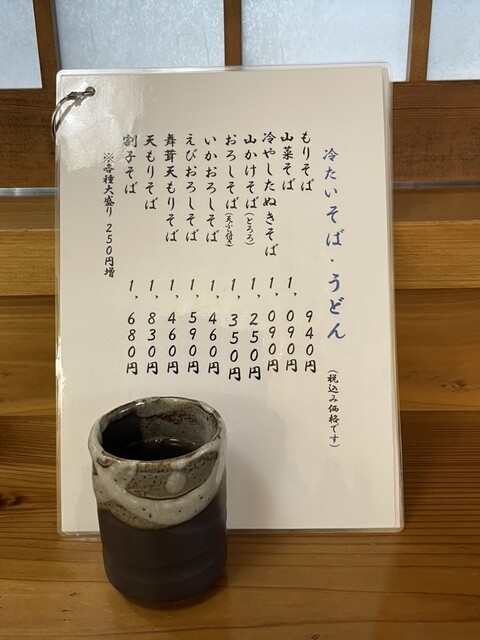 冷たいそば・うどん（税込み価格です）
もりそば 940円
山菜そば 1,090円
冷やしたぬきそば 1,090円
山かけそば（とろろ） 1,250円
おろしそば（天ぷら付き） 1,350円
いかおろしそば 1,460円
えびおろしそば 1,590円
舞茸天もりそば 1,460円
天もりそば 1,830円
割子そば 1,680円
※各種大盛り250円増